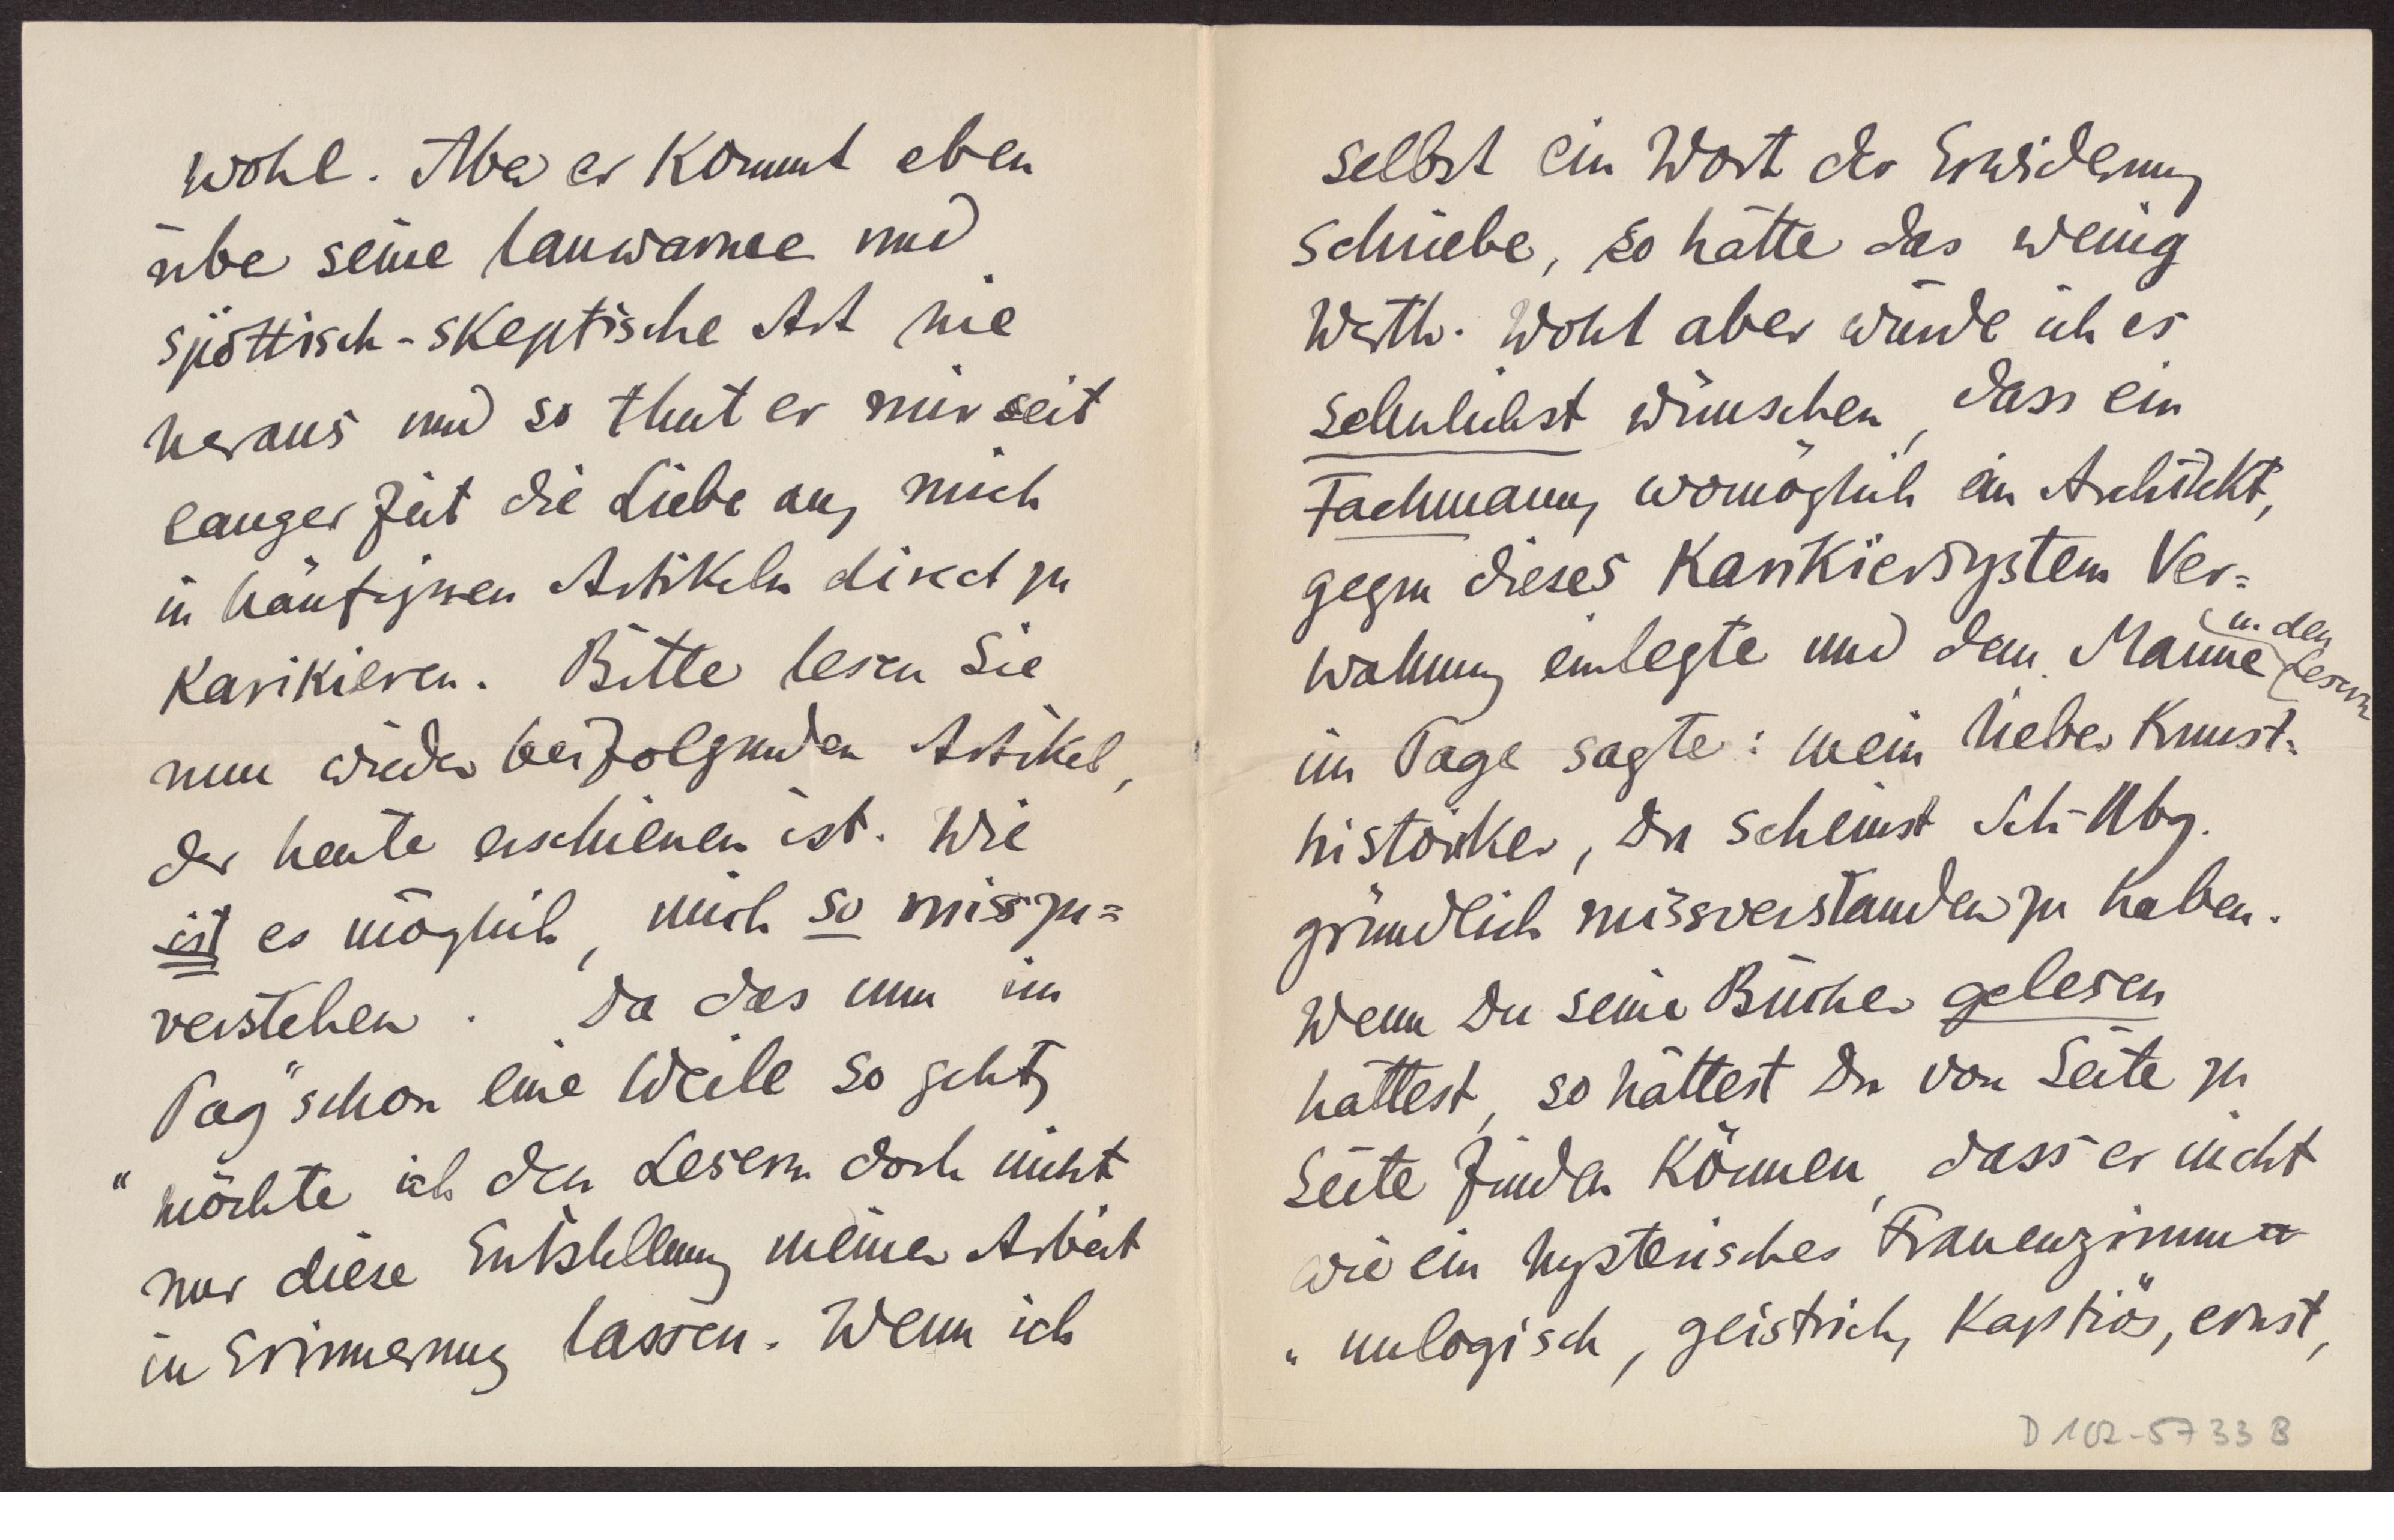 wohl. Aber er kommt eben
über seine lauwarme und
spöttisch-skeptische Art nie
heraus und so thut er mir seit
langer Zeit die Liebe an, mich
in häufigen Artikeln direct zu
karikieren. Bitte lesen Sie
nun wieder beifolgenden Artikel,
der heute erschienen ist. Wie
ist es möglich, mich so misszu=
verstehen. Da das nun im
„Tag" schon eine Weile so geht,
möchte ich den Lesern doch nicht
nur diese Entstellung meiner Arbeit
in Erinnerung lassen. Wenn ich
selbst ein Wort der Erwiderung
schriebe, so hätte das wenig
Werth. Wohl aber würde ich es
sehnlichst wünschen, dass ein
Fachmann, womöglich ein Architekt,
gegen dieses Karikiersystem Ver=
wahrung einlegte und dem Manne (u. den Lesern
im Tage sagte: mein lieber Kunst=
historiker, Du scheinst Sch-Nbg.
gründlich missverstanden zu haben.
Wenn Du seine Bücher gelesen
hättest, so hättest Du von Seite zu
Seite finden können, dass er nicht
wie ein hysterisches Frauenzimmer
„unlogisch, geistreich, kaptiös, ernst,
D 102-5733 B